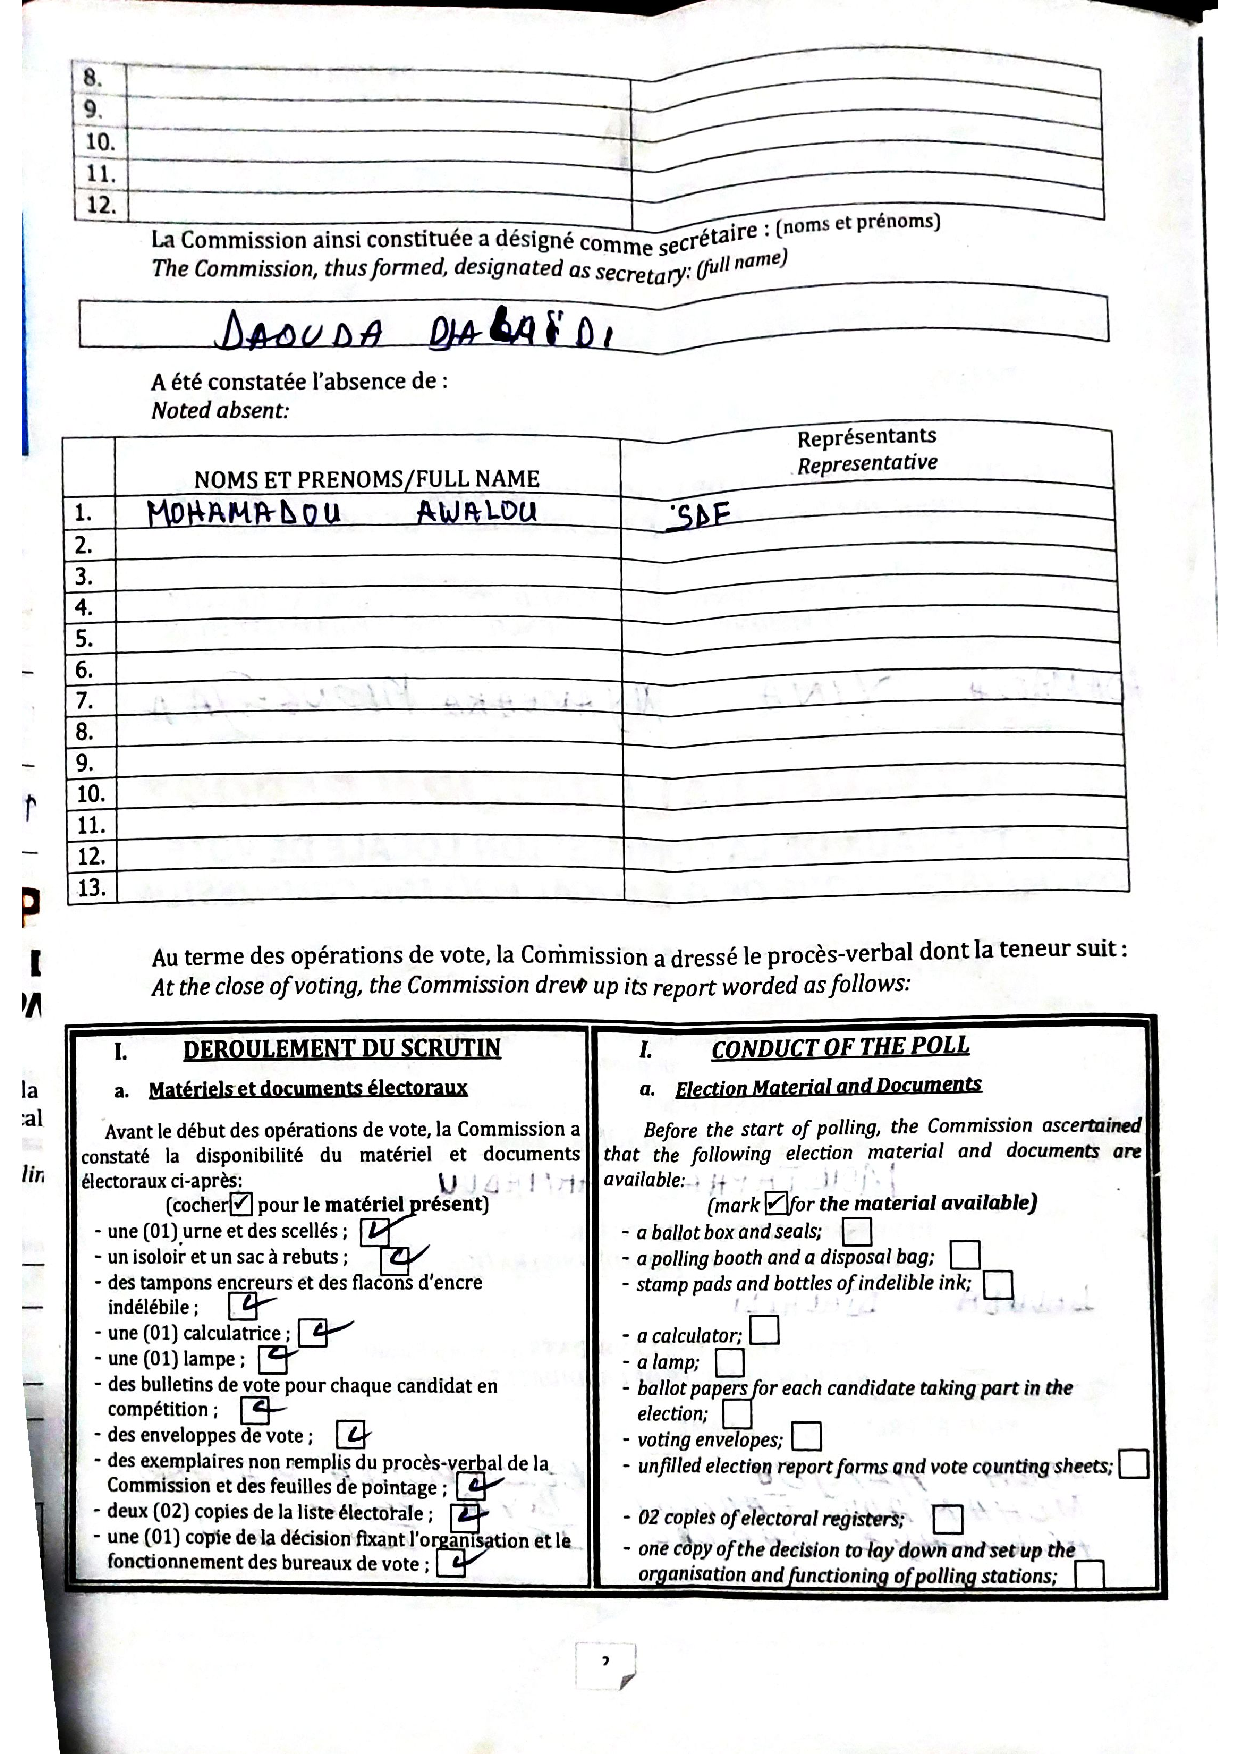 8.
9.
10.
11.
12.
La Commission ainsi constituée a désigné comme secrétaire : (noms et prénoms)
The Commission, thus formed, designated as secretary: (full name)
DAOUDA
A été constatée l'absence de :
Noted absent:
NOMS ET PRENOMS/FULL NAME
Représentants
Representative
1. MOHAMADOU AWALOU SDF
2.
3.
4.
5.
6.
7.
8.
9.
10.
11.
12.
13.
Au terme des opérations de vote, la Commission a dressé le procès-verbal dont la teneur suit :
At the close of voting, the Commission drew up its report worded as follows:
I. DEROULEMENT DU SCRUTIN
a. Matériels et documents électoraux
Avant le début des opérations de vote, la Commission a
constaté la disponibilité du matériel et documents
électoraux ci-après:
(cocher ✓ pour le matériel présent)
- une (01) urne et des scellés ;
- un isoloir et un sac à rebuts ;
- des tampons encreurs et des flacons d'encre
indélébile ;
- une (01) calculatrice ;
- une (01) lampe ;
- des bulletins de vote pour chaque candidat en
compétition ;
- des enveloppes de vote ;
- des exemplaires non remplis du procès-verbal de la
Commission et des feuilles de pointage ;
- deux (02) copies de la liste électorale ;
- une (01) copie de la décision fixant l'organisation et le
fonctionnement des bureaux de vote ;
I. CONDUCT OF THE POLL
a. Election Material and Documents
Before the start of polling, the Commission ascertained
that the following election material and documents are
available:
(mark ✓ for the material available)
- a ballot box and seals;
- a polling booth and a disposal bag;
- stamp pads and bottles of indelible ink;
- a calculator;
- a lamp;
- ballot papers for each candidate taking part in the
election;
- voting envelopes;
- unfilled election report forms and vote counting sheets;
- 02 copies of electoral registers;
- one copy of the decision to lay down and set up the
organisation and functioning of polling stations;
2